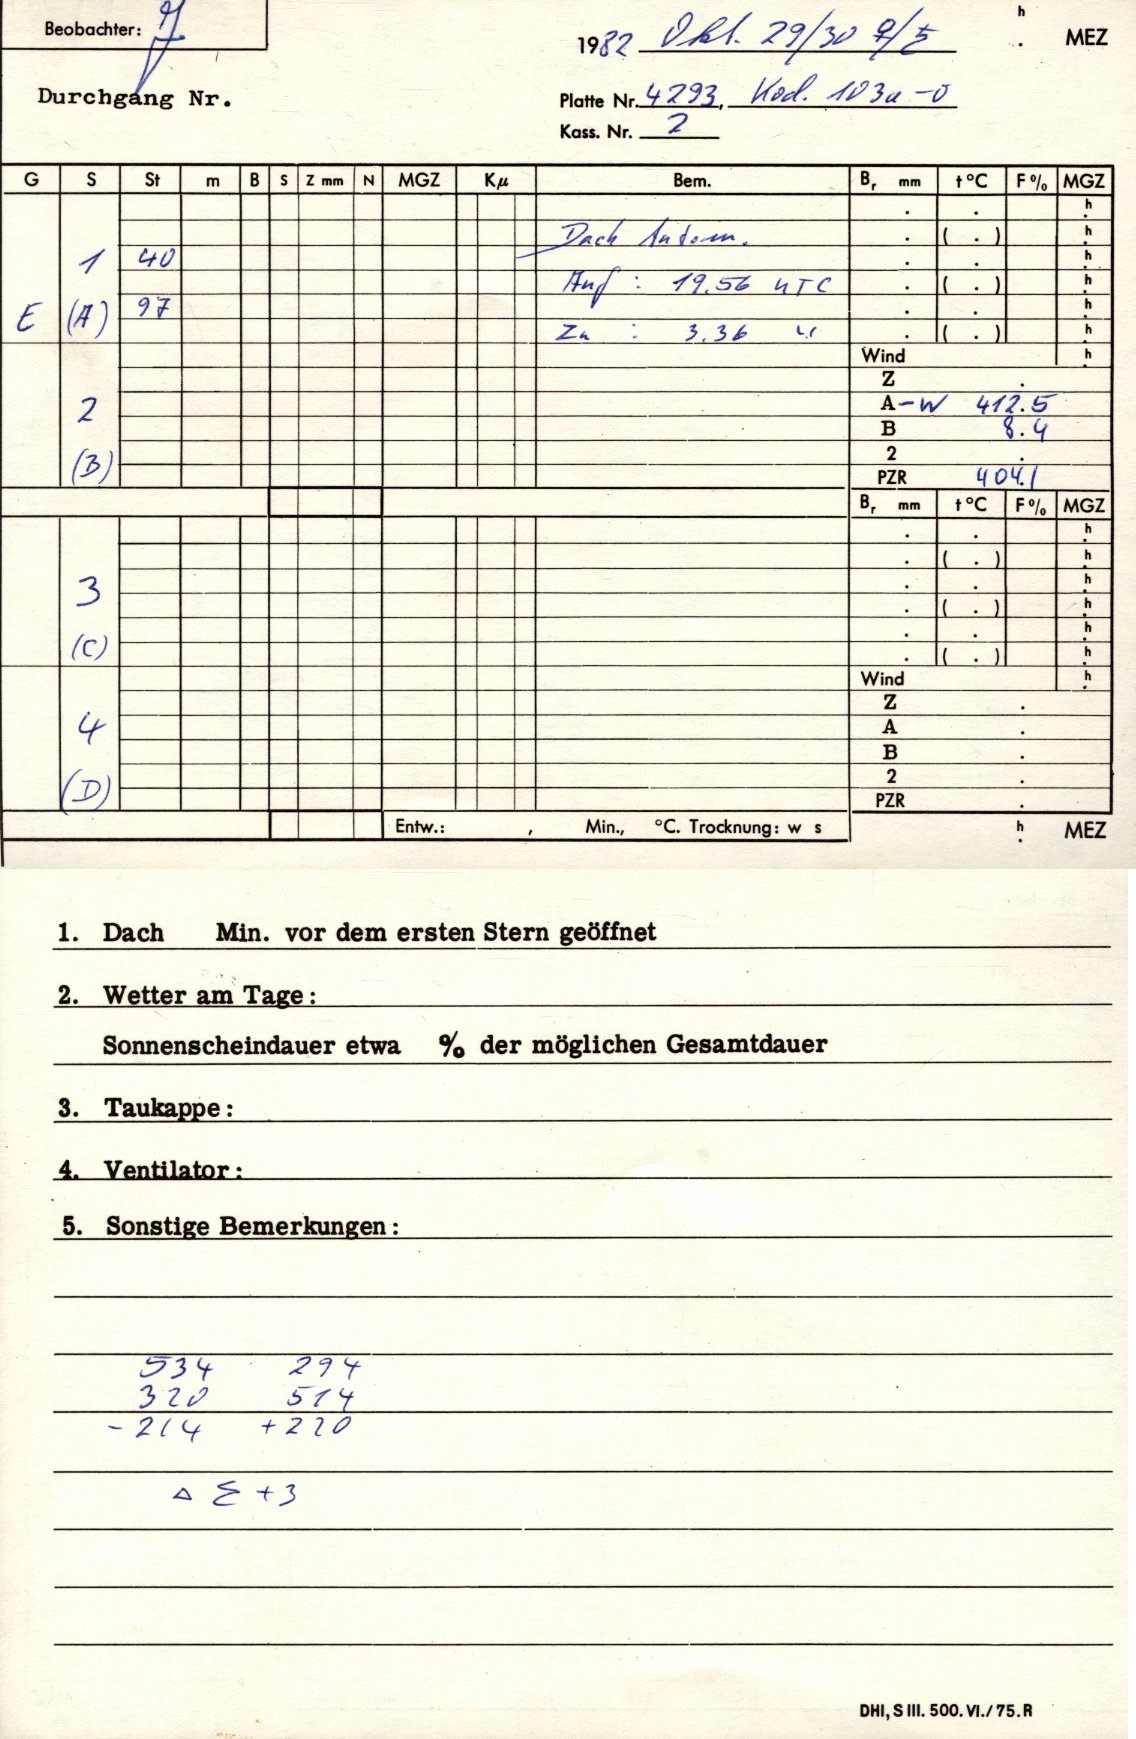 Beobachter:
h
1982 Okt. 29/30 . MEZ
Durchgang Nr.
Platte Nr. 4293, Kod. 103a-O
Kass. Nr. 2
G S St m B S Z mm N MGZ Kμ Bem. Br mm t °C F % MGZ
. . h
Dach Autom. . ( . ) h
1 40 . . h
Auf : 19.56 UTC . ( . ) h
E (A) 97 . . h
Zu : 3.36 " . ( . ) h
Wind h
Z .
2 A-W 412.5
B 8.4
2 .
(B) PZR 404.1
Br mm t °C F % MGZ
. . h
. ( . ) h
3 . . h
. ( . ) h
(C) . . h
. ( . ) h
Wind h
Z .
4 A .
B .
(D) 2 .
PZR .
Entw.: , Min., °C. Trocknung: w s h . MEZ
1. Dach Min. vor dem ersten Stern geöffnet
2. Wetter am Tage:
Sonnenscheindauer etwa % der möglichen Gesamtdauer
3. Taukappe:
4. Ventilator:
5. Sonstige Bemerkungen:
534 294
320 514
-214 +220
Δ Σ +3
DHI, S III. 500. VI./75. R